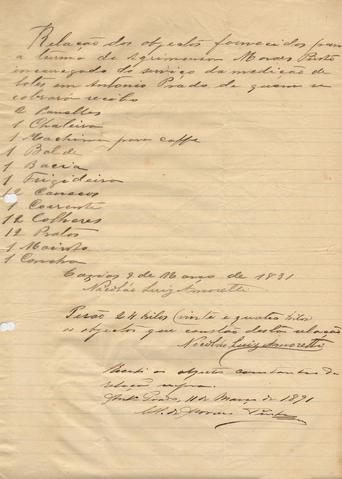 Relação dos objectos fornecidos para
a turma do Agrimensor Moraes Porto
encarregado do serviço da medição de
lotes em Antonio Prado de quem se
cobrará recibo
2 Panellas
1 Chaleira
1 Machina para caffe
1 Balde
1 Bacia
1 Frigideira
12 Canecos
1 
12 Colheres
12 Pratos
1 Moinho
1 Concha
Caxias 9 de Março de 1891
Nicoláo Luiz Amoretti
Pesão 24 kilos (vinte e quatro kilos)
os objectos que constão desta relação
Nicoláo Luiz Amoretti
Recebi os objectos constantes da
relação supra.
Antº Prado, 11 de Março de 1891
M. de Moraes Porto